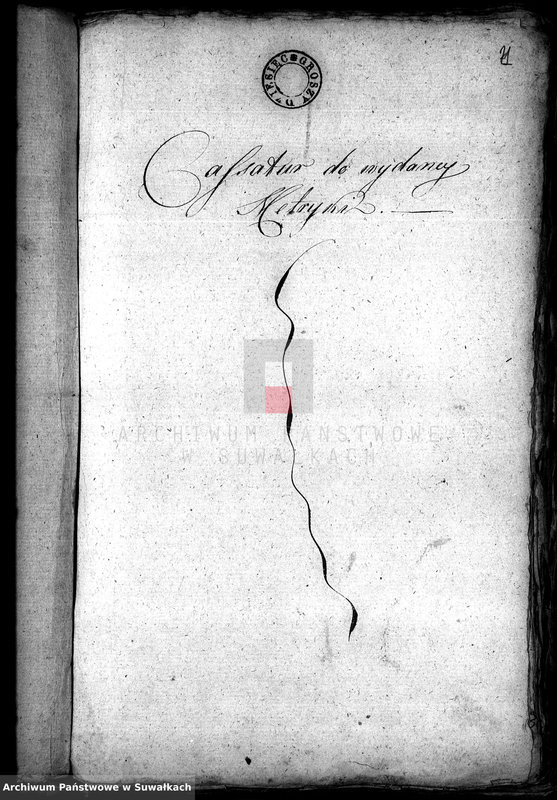 DZIESIĘĆ GROSZY
Cassatur do wydaney
Metryki.
ARCHIWUM PAŃSTWOWE
W SUWAŁKACH
Archiwum Państwowe w Suwałkach